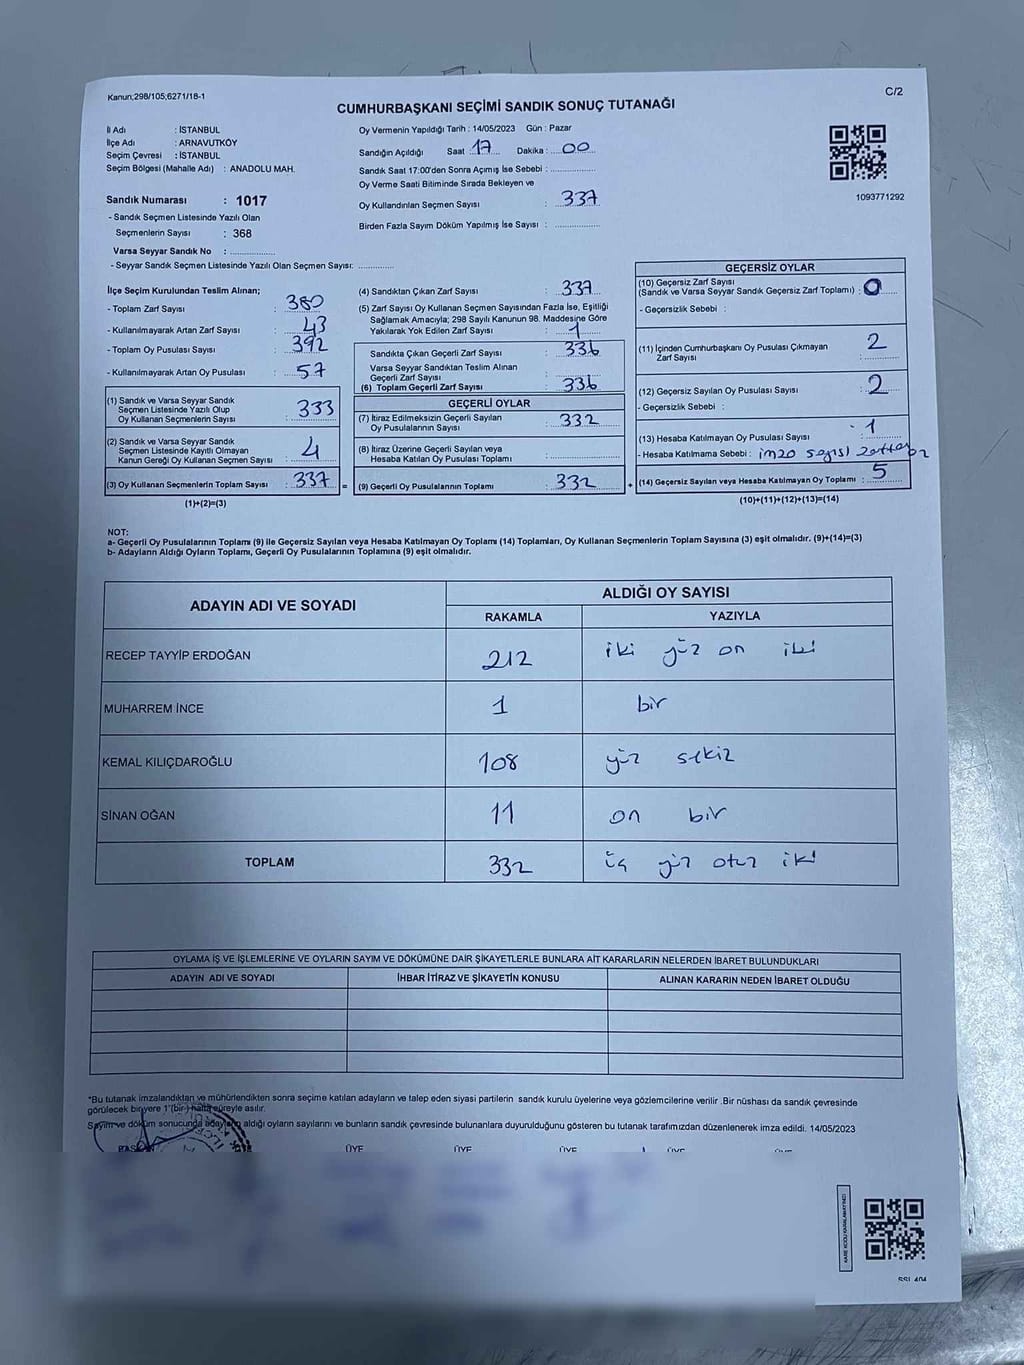 Kanun;298/105;6271/18-1
C/2
CUMHURBAŞKANI SEÇİMİ SANDIK SONUÇ TUTANAĞI
İl Adı : İSTANBUL
İlçe Adı : ARNAVUTKÖY
Seçim Çevresi : İSTANBUL
Seçim Bölgesi (Mahalle Adı) : ANADOLU MAH.
Sandık Numarası : 1017
- Sandık Seçmen Listesinde Yazılı Olan
Seçmenlerin Sayısı : 368
Varsa Seyyar Sandık No : ................
- Seyyar Sandık Seçmen Listesinde Yazılı Olan Seçmen Sayısı: .............
Oy Vermenin Yapıldığı Tarih : 14/05/2023 Gün : Pazar
Sandığın Açıldığı Saat : 17 Dakika : 00
Sandık Saat 17:00'den Sonra Açımış İse Sebebi : ................
Oy Verme Saati Bitiminde Sırada Bekleyen ve
Oy Kullandırılan Seçmen Sayısı : 337
Birden Fazla Sayım Döküm Yapılmış İse Sayısı : ................
1093771292
İlçe Seçim Kurulundan Teslim Alınan;
- Toplam Zarf Sayısı : 380
- Kullanılmayarak Artan Zarf Sayısı : 43
- Toplam Oy Pusulası Sayısı : 392
- Kullanılmayarak Artan Oy Pusulası : 57
(1) Sandık ve Varsa Seyyar Sandık
Seçmen Listesinde Yazılı Olup
Oy Kullanan Seçmenlerin Sayısı : 333
(2) Sandık ve Varsa Seyyar Sandık
Seçmen Listesinde Kayıtlı Olmayan
Kanun Gereği Oy Kullanan Seçmen Sayısı : 4
(3) Oy Kullanan Seçmenlerin Toplam Sayısı : 337
(1)+(2)=(3)
(4) Sandıktan Çıkan Zarf Sayısı : 337
(5) Zarf Sayısı Oy Kullanan Seçmen Sayısından Fazla İse, Eşitliği
Sağlamak Amacıyla; 298 Sayılı Kanunun 98. Maddesine Göre
Yakılarak Yok Edilen Zarf Sayısı : 1
Sandıkta Çıkan Geçerli Zarf Sayısı : 336
Varsa Seyyar Sandıktan Teslim Alınan
Geçerli Zarf Sayısı :
(6) Toplam Geçerli Zarf Sayısı : 336
GEÇERLİ OYLAR
(7) İtiraz Edilmeksizin Geçerli Sayılan
Oy Pusulalarının Sayısı : 332
(8) İtiraz Üzerine Geçerli Sayılan veya
Hesaba Katılan Oy Pusulası Toplamı : ................
=
(9) Geçerli Oy Pusulalarının Toplamı : 332
+
GEÇERSİZ OYLAR
(10) Geçersiz Zarf Sayısı
(Sandık ve Varsa Seyyar Sandık Geçersiz Zarf Toplamı) : 0
- Geçersizlik Sebebi :
(11) İçinden Cumhurbaşkanı Oy Pusulası Çıkmayan
Zarf Sayısı : 2
(12) Geçersiz Sayılan Oy Pusulası Sayısı : 2
- Geçersizlik Sebebi :
(13) Hesaba Katılmayan Oy Pusulası Sayısı : 1
- Hesaba Katılmama Sebebi : imza sayısı
(14) Geçersiz Sayılan veya Hesaba Katılmayan Oy Toplamı : 5
(10)+(11)+(12)+(13)=(14)
NOT:
a- Geçerli Oy Pusulalarının Toplamı (9) ile Geçersiz Sayılan veya Hesaba Katılmayan Oy Toplamı (14) Toplamları, Oy Kullanan Seçmenlerin Toplam Sayısına (3) eşit olmalıdır. (9)+(14)=(3)
b- Adayların Aldığı Oyların Toplamı, Geçerli Oy Pusulalarının Toplamına (9) eşit olmalıdır.
ADAYIN ADI VE SOYADI ALDIĞI OY SAYISI
RAKAMLA YAZIYLA
RECEP TAYYİP ERDOĞAN 212 iki yüz on iki
MUHARREM İNCE 1 bir
KEMAL KILIÇDAROĞLU 108 yüz sekiz
SİNAN OĞAN 11 on bir
TOPLAM 332 üç yüz otuz iki
OYLAMA İŞ VE İŞLEMLERİNE VE OYLARIN SAYIM VE DÖKÜMÜNE DAİR ŞİKAYETLERLE BUNLARA AİT KARARLARIN NELERDEN İBARET BULUNDUKLARI
ADAYIN ADI VE SOYADI İHBAR İTİRAZ VE ŞİKAYETİN KONUSU ALINAN KARARIN NEDEN İBARET OLDUĞU
*Bu tutanak imzalandıktan ve mühürlendikten sonra seçime katılan adayların ve talep eden siyasi partilerin sandık kurulu üyelerine veya gözlemcilerine verilir .Bir nüshası da sandık çevresinde
görülecek bir yere 1 (bir) hafta süreyle asılır.
Sayım ve döküm sonucunda adayların aldığı oyların sayılarını ve bunların sandık çevresinde bulunanlara duyurulduğunu gösteren bu tutanak tarafımızdan düzenlenerek imza edildi. 14/05/2023
BAŞKAN ÜYE ÜYE ÜYE ÜYE
KARE KODU KARALAMAYINIZ!